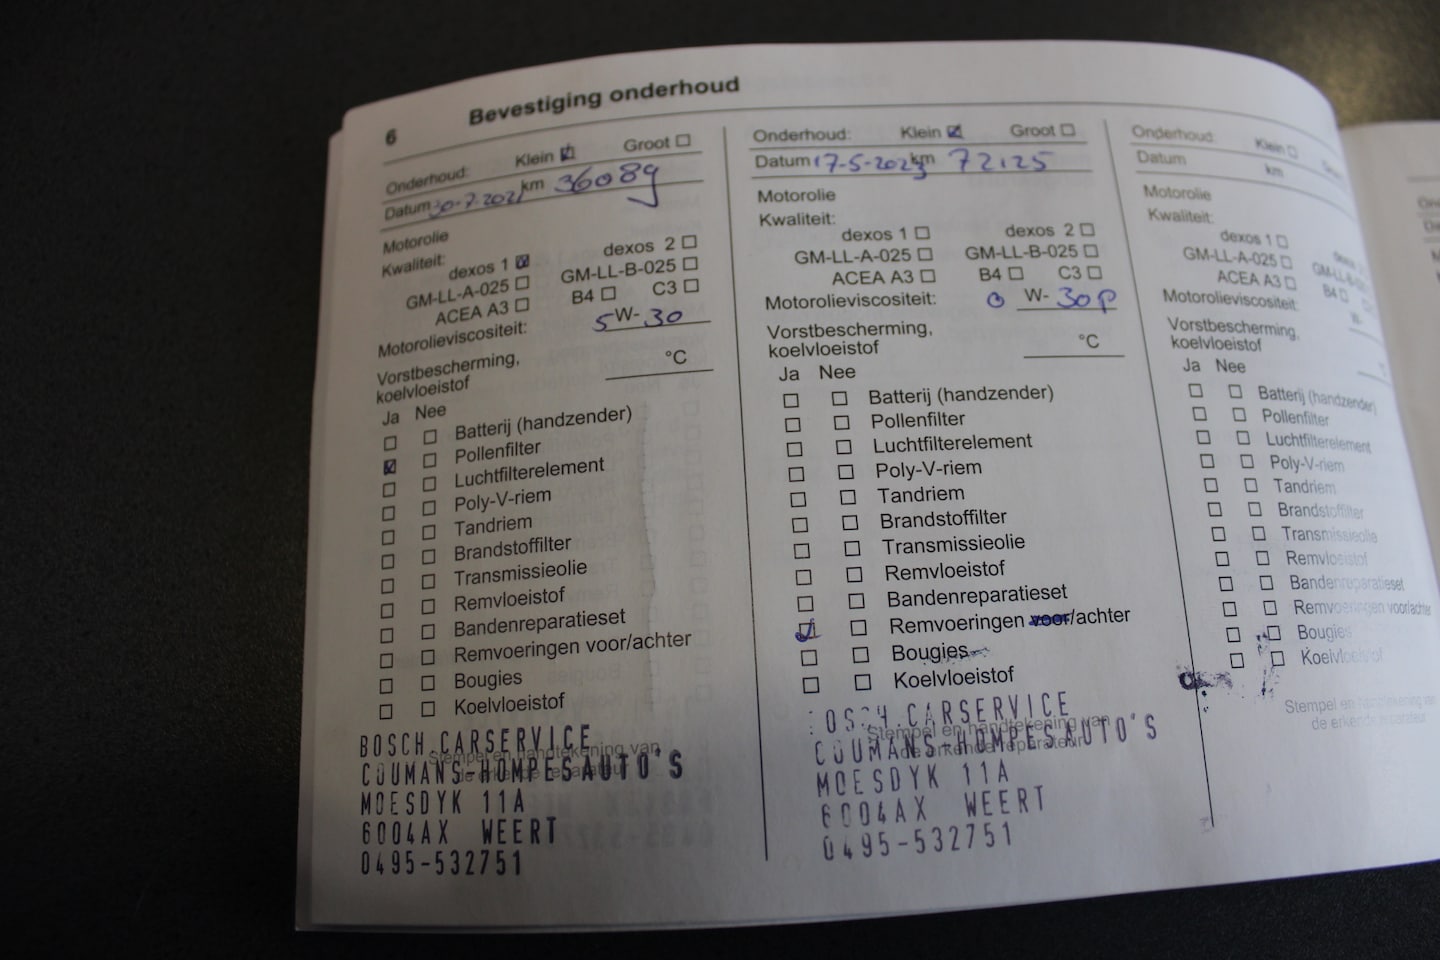 6 Bevestiging onderhoud
Onderhoud: Klein Groot
Datum 30-7-2021 km 36089
Motorolie
Kwaliteit:
dexos 1 dexos 2
GM-LL-A-025 GM-LL-B-025
ACEA A3 B4 C3
Motorolieviscositeit: 5 W- 30
Vorstbescherming,
koelvloeistof °C
Ja Nee
Batterij (handzender)
Pollenfilter
Luchtfilterelement
Poly-V-riem
Tandriem
Brandstoffilter
Transmissieolie
Remvloeistof
Bandenreparatieset
Remvoeringen voor/achter
Bougies
Koelvloeistof
Stempel en handtekening van
de erkende reparateur
BOSCH CARSERVICE
COUMANS-HOMPESAUTO'S
MOESDYK 11A
6004AX WEERT
0495-532751
Onderhoud: Klein Groot
Datum 17-5-2023 km 72125
Motorolie
Kwaliteit:
dexos 1 dexos 2
GM-LL-A-025 GM-LL-B-025
ACEA A3 B4 C3
Motorolieviscositeit: 0 W- 30p
Vorstbescherming,
koelvloeistof °C
Ja Nee
Batterij (handzender)
Pollenfilter
Luchtfilterelement
Poly-V-riem
Tandriem
Brandstoffilter
Transmissieolie
Remvloeistof
Bandenreparatieset
Remvoeringen voor/achter
Bougies
Koelvloeistof
Stempel en handtekening van
de erkende reparateur
BOSCH CARSERVICE
COUMANS-HOMPESAUTO'S
MOESDYK 11A
6004AX WEERT
0495-532751
Onderhoud: Klein
Datum km
Motorolie
Kwaliteit:
dexos 1
GM-LL-A-025
ACEA A3 B4
Motorolieviscositeit: W-
Vorstbescherming,
koelvloeistof
Ja Nee
Batterij (handzender)
Pollenfilter
Luchtfilterelement
Poly-V-riem
Tandriem
Brandstoffilter
Transmissieolie
Remvloeistof
Bandenreparatieset
Remvoeringen voor/achter
Bougies
Koelvloeistof
Stempel en handtekening van
de erkende reparateur